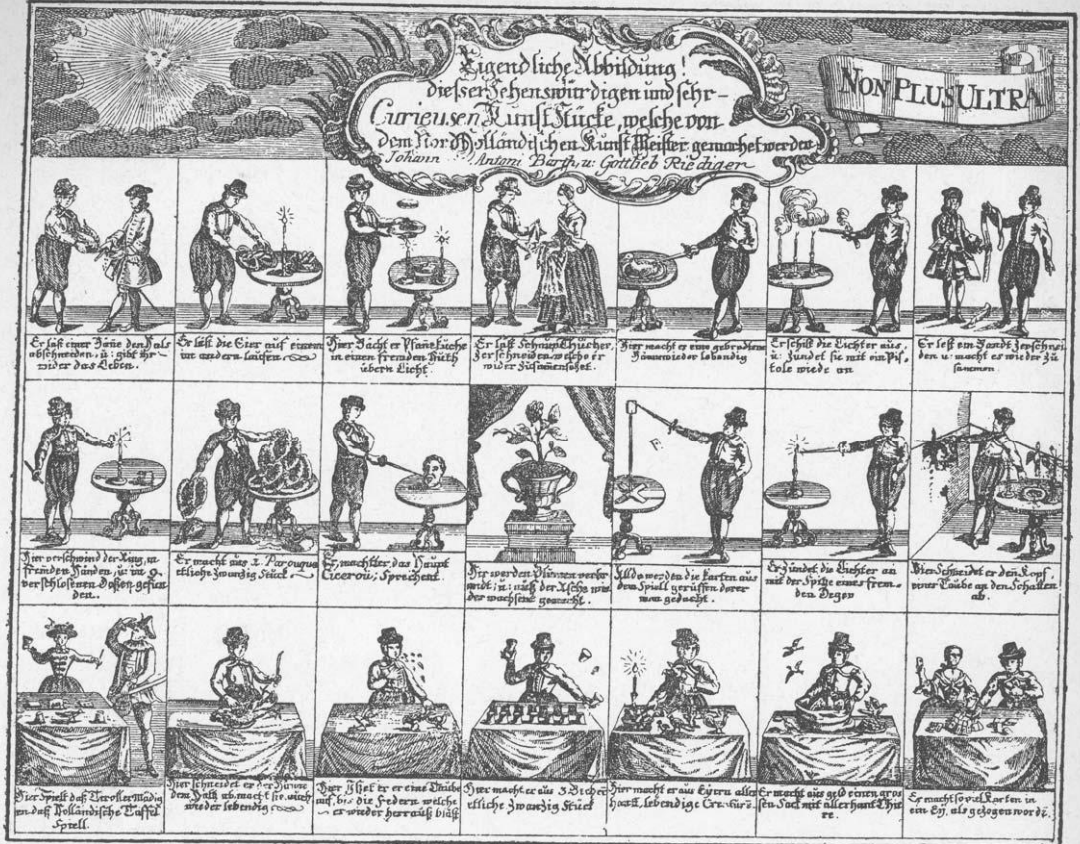 Eigendliche Abbildung!
dießer Sehenswürdigen und sehr-
Curieusen Kunst Stücke, welche von
dem Nord Holländischen Kunst Meister gemachet werden
Johann Antoni Barth, u: Gottlieb Riediger
NON PLUS ULTRA
Er läst einer Däne den Hals
abschneiden, u: gibt ihr
wider das Leben.
Er läst die Eier auf einem
andern laufen.
Hier bacht er Pfanekuche
in einen fremden Huth
übern Licht.
Er läst Schnup Thücher
Zerschneiden, welche er
wider Zusamensetzt.
Hier macht er eine gebradtene
wieder lebandig
Er schist die Lichter aus,
u: Zündet sie mit ein Pis-
tole wiede an
Er lest ein Bandt Zerschnei
den u: macht es wieder zu
sammen
Hier verschwind der Ring, in
fremden Händen, u: in
verschlosenen Dosen gefun
den.
Er macht aus 2. Parouque
etliche Zwanzig Stück
Er macht hier das Haupt
Ciceron; Sprechent.
Hir werden Blumen verbr
andt; u: auß der Aschs wie
der wachsent gemacht.
Allda werden die Karten aus
dem Spiell gerüffen derer
man gedacht.
Er Zündet die Lichter an
mit der Spitze eines frem-
den Degen
Hier Schneidet er den Kopf
einer Taube an den Schatten
ab.
Hir Spielt daß Tiroller Mädig
en daß Hollandische Taffel
Spiell.
Hier schneidet er der Henne
dem Halß ab, macht sie auch
wieder lebendig
Hier er eine Taube
auf, biß die Federn welche
er wieder herrauß bläst
Hier macht er aus 3 Becher
etliche Zwanzig Stück
Hier macht er aus Eyern aller
handt, lebendige Creaturn
Er macht aus geld einen gros
sen Sack mit allerhant Thie
re.
Er macht so viel Karten in
ein Ey, als gezogen wordt.